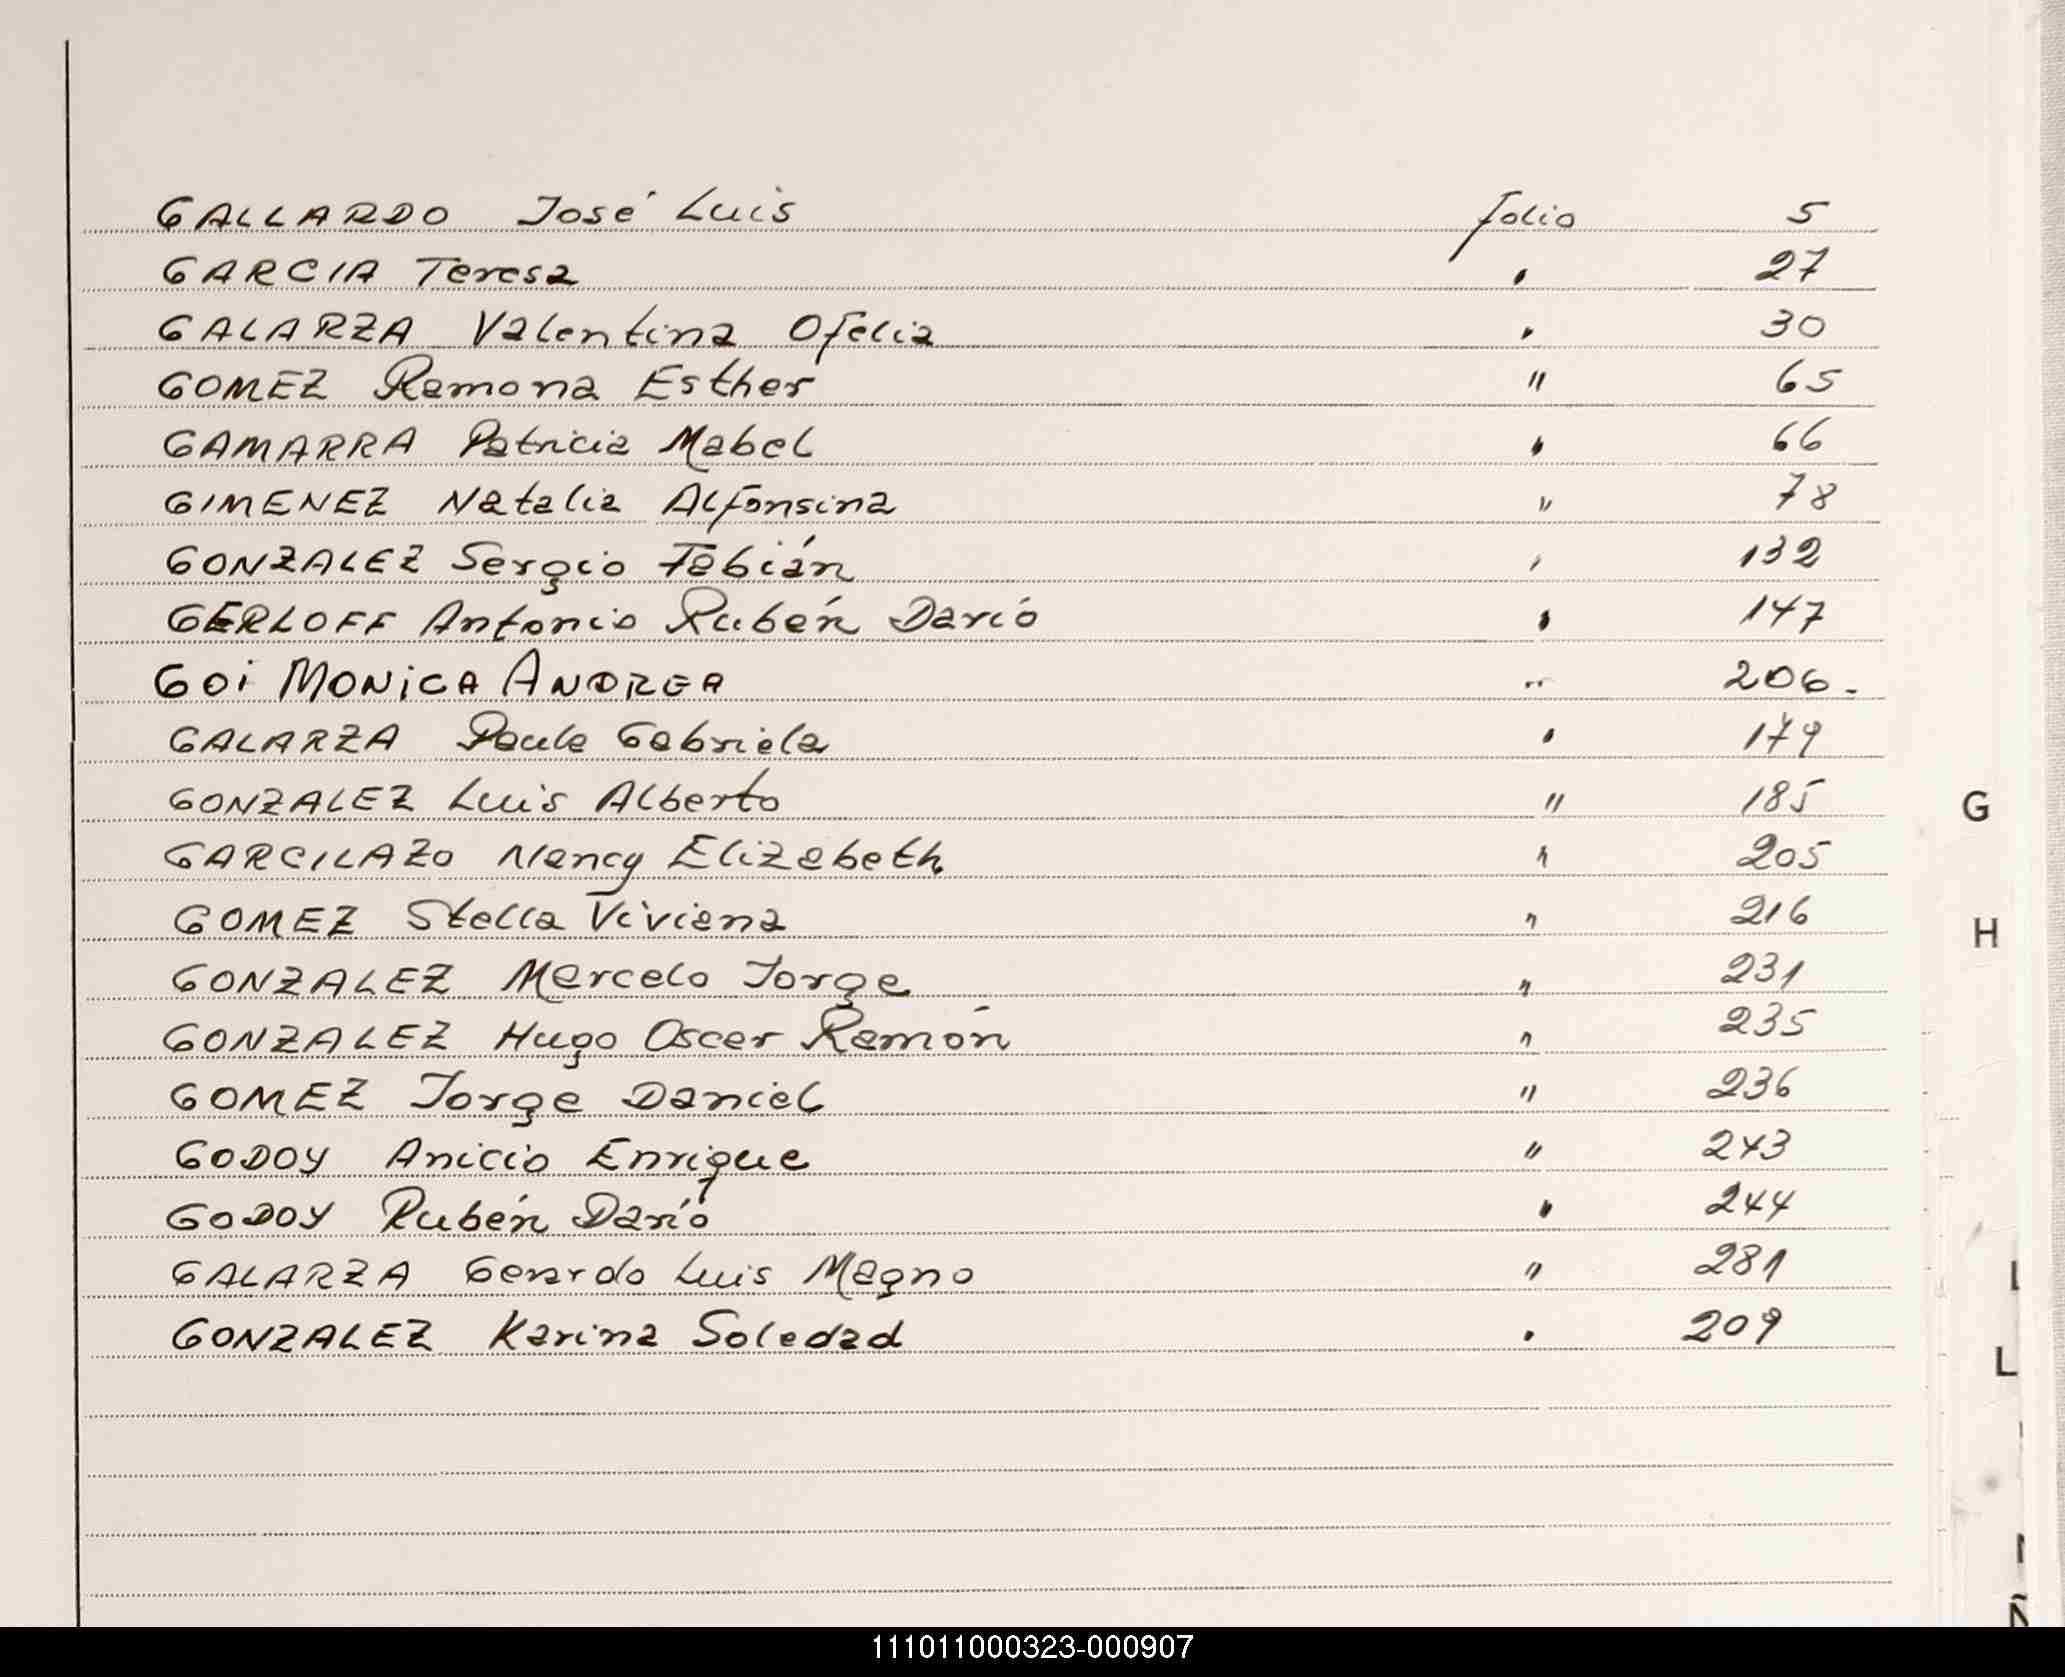 GALLARDO José Luis folio 5
GARCIA Teresa " 27
GALARZA Valentina Ofelia " 30
GOMEZ Ramona Esther " 65
GAMARRA Patricia Mabel " 66
GIMENEZ Natalia Alfonsina " 78
GONZALEZ Sergio Fabián " 132
GERLOFF Antonio Rubén Darío " 147
GOi MONiCA ANDREA " 206.
GALARZA Paula Gabriela " 179
GONZALEZ Luis Alberto " 185
GARCILAZO Nancy Elizabeth " 205
GOMEZ Stella Viviana " 216
GONZALEZ Marcelo Jorge " 231
GONZALEZ Hugo Oscar Ramón " 235
GOMEZ Jorge Daniel " 236
GODOY Anicio Enrique " 243
GODOY Rubén Darío " 244
GALARZA Gerardo Luis Magno " 281
GONZALEZ Karina Soledad " 209
G
H
L
111011000323-000907